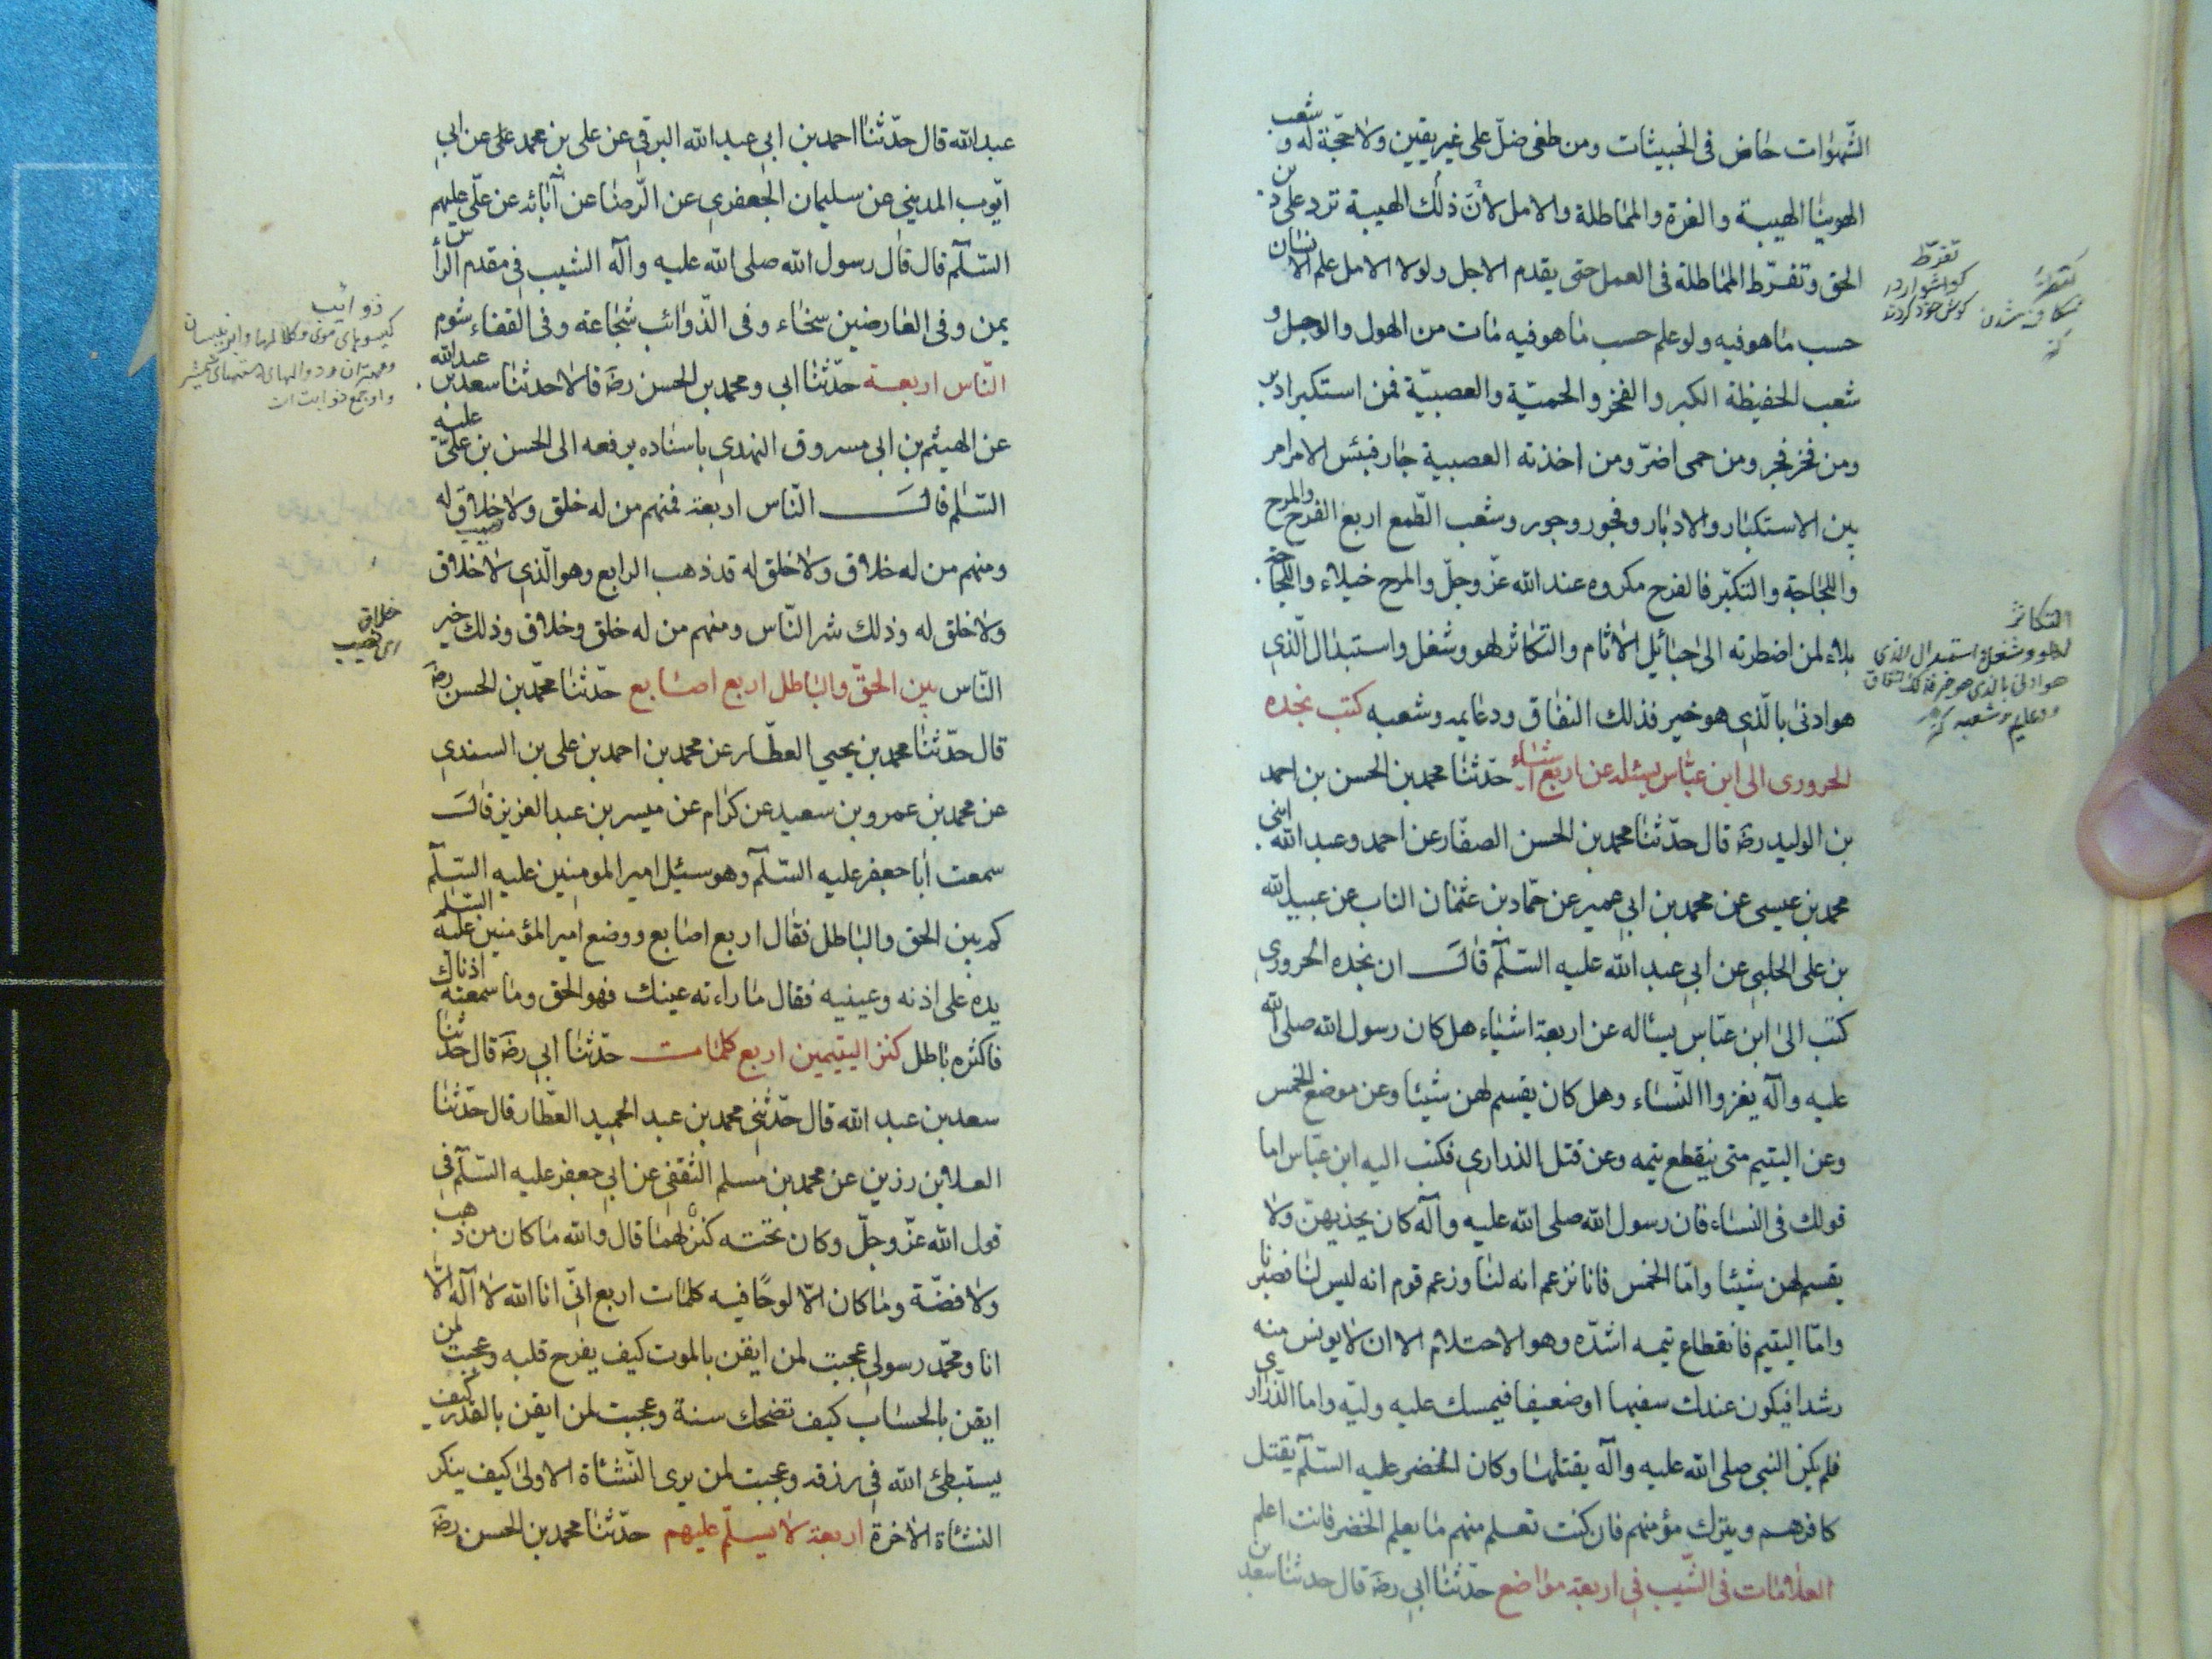 الشهوات خاض فى الخبيثات ومن طغى ضلّ على غير يقين ولا حجّة له و شعب
الهوينا الهيبة والغرة والمماطلة والامل لانّ ذلك الهيبة ترد على دين
الحق وتفرّط المماطلة فى العمل حتى يقدم الاجل ولولا الامل علم الانسان
حسب ما هو فيه ولو علم حسب ما هو فيه مات من الهول والوجل و
شعب الحفيظة الكبر والفخر والحميّة والعصبيّة فمن استكبر ادبر
ومن فخر فجر ومن حمى اضرّ ومن اخذته العصبية جار فبئس الامر امر
بين الاستكبار والادبار وفجور وجور وشعب الطّمع اربع الفرح والمرح
واللجاجة والتكبّر فالفرح مكروه عند الله عزّ وجلّ والمرح خيلاء واللّجاجة
بلاء لمن اضطرته الى حبائل الاثام والتكاثر لهو وشغل واستبدال الّذي
هو ادنى بالّذي هو خير فذلك النفاق ودعايمه وشعبه كتب نجده
الحرورى الى ابن عبّاس يسئله عن اربع اشياء حدّثنا محمد بن الحسن بن احمد
بن الوليد رضه قال حدّثنا محمد بن الحسن الصفّار عن احمد وعبد الله ابنى
محمد بن عيسى عن محمد بن ابي عمير عن حمّاد بن عثمان الناب عن عبيد الله
بن على الحلبي عن ابي عبد الله عليه السّلم قال ان نجده الحروري
كتب الى ابن عبّاس يسأله عن اربعة اشياء هل كان رسول الله صلى الله
عليه وآله يغزوا النّساء وهل كان يقسم لهن شيئا وعن موضع الخمس
وعن اليتيم متى ينقطع يتمه وعن قتل الذراري فكتب اليه ابن عبّاس اما
قولك فى النساء فان رسول الله صلى الله عليه وآله كان يحذيهنّ ولا
يقسم لهن شيئا وامّا الخمس فانا نزعم انه لنا وزعم قوم انه ليس لنا فصبرنا
وامّا اليتيم فانقطاع يتمه اشدّه وهو الاحتلام الا ان لا يونس منه
رشدا فيكون عندك سفيها او ضعيفا فيمسك عليه وليّه واما الذّراري
فلم يكن النبي صلى الله عليه وآله يقتلها وكان الخضر عليه السّلم يقتل
كافرهم ويترك مؤمنهم فان كنت تعلم منهم ما يعلم الخضر فانت اعلم
العلامات فى الشّيب في اربعة مواضع حدّثنا ابي رضه قال حدثنا سعد بن
تفرّط
التكاثر
لهو وشغل واستبدال الذى
هو ادنى بالذى هو خير فذلك النفاق
ودعايمه وشعبه
عبد الله قال حدّثنا احمد بن ابي عبد الله البرقي عن على بن محمد عن ابي
ايّوب المديني عن سليمان الجعفري عن الرّضا عن آبائه عن علّى عليهم
السّلم قال قال رسول الله صلى الله عليه وآله الشيب في مقدم الرأس
يمن وفى العارضين سخاء وفى الذّوائب شجاعة وفى القفاء شوم
النّاس اربعة حدّثنا ابي ومحمد بن الحسن رضه قالا حدثنا سعد بن عبد الله
عن الهيثم بن ابي مسروق النهدي باسناده يرفعه الى الحسن بن علىّ عليه
السّلم قال النّاس اربعة فمنهم من له خلق ولا خلاق له
ومنهم من له خلاق ولا خلق له قد ذهب الرابع وهو الّذي لا خلاق
ولا خلق له وذلك شر النّاس ومنهم من له خلق وخلاق وذلك خير
النّاس بين الحقّ والباطل اربع اصابع حدّثنا محمّد بن الحسن رضه
قال حدّثنا محمد بن يحيي العطّار عن محمد بن احمد بن على بن السندي
عن محمد بن عمرو بن سعيد عن كرام عن ميسر بن عبد العزيز قال
سمعت أبا جعفر عليه السّلم وهو سئيل امير المومنين عليه السّلم
كم بين الحق والباطل فقال اربع اصابع ووضع امير المؤمنين عليه السّلم
يده على اذنه وعينيه فقال ما راءته عينك فهو الحق وما سمعته اذناك
فاكثره باطل كنز اليتيمين اربع كلمات حدّثنا ابي رضه قال حدّثنا
سعد بن عبد الله قال حدّثني محمد بن عبد الحميد العطّار قال حدّثنا
العلا بن رزين عن محمد بن مسلم الثقفي عن ابي جعفر عليه السّلم في
قول الله عزّ وجلّ وكان تحته كنز لهما قال والله ما كان من ذهب
ولا فضّة وما كان الّا لوحًا فيه كلمات اربع انّي انا الله لا آله الّا
انا ومحمّد رسولي عجبت لمن ايقن بالموت كيف يفرح قلبه وعجبت لمن
ايقن بالحساب كيف تضحك سنة وعجبت لمن ايقن بالقدر كيف
يستبطئ الله في رزقه وعجبت لمن يرى النّشأة الاولى كيف ينكر
النشأة الاخرة اربعة لا يسلّم عليهم حدّثنا محمد بن الحسن رضه
ذوائب
خلاق
اى نصيب